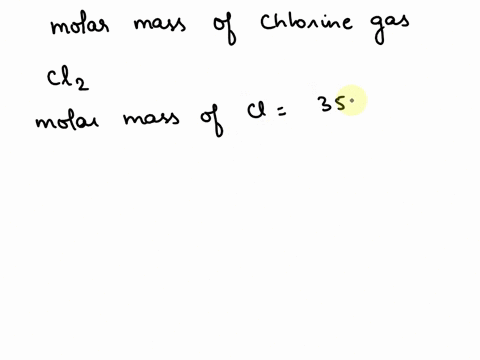 molar mass of Chlorine gas
Cl2
molar mass of Cl = 35.